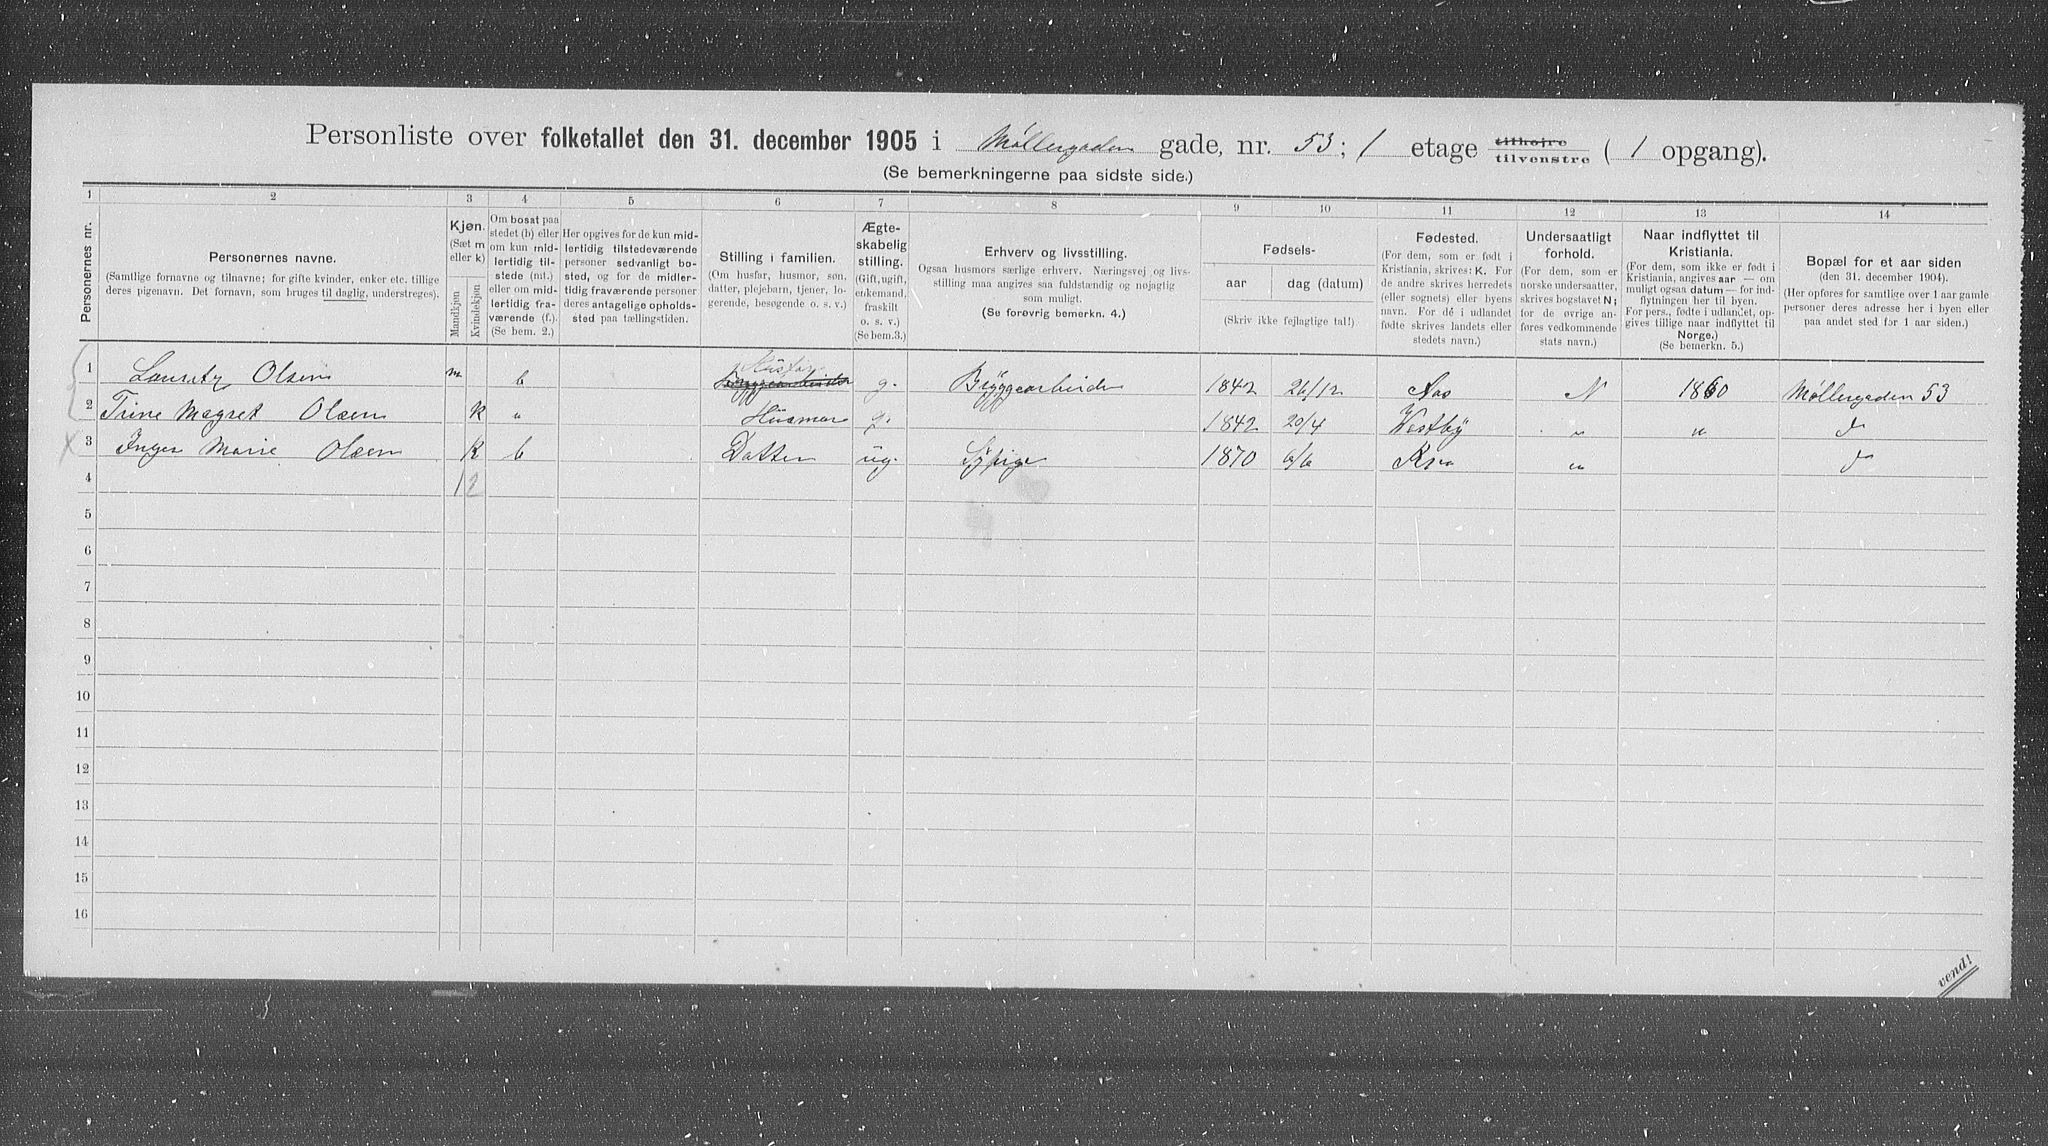 Personliste over folketallet den 31. december 1905 i Møllergaden gade, nr. 53; 1 etage tilhøire tilvenstre ( 1 opgang).
(Se bemerkningerne paa sidste side.)
1 2 3 4 5 6 7 8 9 10 11 12 13 14
Personernes nr.
Personernes navne.
(Samtlige fornavne og tilnavne; for gifte kvinder, enker etc. tillige
deres pigenavn. Det fornavn, som bruges til daglig, understreges).
Kjøn.
(Sæt m
eller k.)
Mandkjøn
Kvindekjøn
Om bosat paa
stedet (b) eller
om kun mid-
lertidig til-
stede (mt.)
eller om mid-
lertidig fra-
værende (f.).
(Se bem. 2.)
Her opgives for de kun mid-
lertidig tilstedeværende
personer sedvanligt bo-
sted, og for de midler-
tidig fraværende personer
deres antagelige opholds-
sted paa tællingstiden.
Stilling i familien.
(Om husfar, husmor, søn,
datter, plejebarn, tjener, lo-
gerende, besøgende o. s. v.)
Ægte-
skabelig
stilling.
(Gift, ugift,
enkemand,
fraskilt
o. s. v.)
(Se bem.3.)
Erhverv og livsstilling.
Ogsaa husmors særlige erhverv. Næringsvej og livs-
stilling maa angives saa fuldstændig og nøjagtig
som muligt.
(Se forøvrig bemerkn. 4.)
Fødsels-
aar
dag (datum)
(Skriv ikke fejlagtige tal!).
Fødested.
(For dem, som er født i
Kristiania, skrives: K. For
de andre skrives herredets
(eller sognets) eller byens
navn. For de i udlandet
fødte skrives landets eller
stedets navn.)
Undersaatligt
forhold.
(For dem, som er
norske undersaatter,
skrives bogstavet N;
for de øvrige an-
føres vedkommende
stats navn.)
Naar indflyttet til
Kristiania.
(For dem, som ikke er født i
Kristiania, angives aar — om
muligt ogsaa datum — for ind-
flytningen her til byen.
For pers., fødte i udlandet, op-
gives tillige naar indflyttet til
Norge.)
(Se bemerkn. 5.)
Bopæl for et aar siden
(den 31. december 1904).
(Her opføres for samtlige over 1 aar gamle
personer deres adresse her i byen eller
paa andet sted før 1 aar siden.)
1 Lauritz Olsen m b Husfar g. Bryggearbeider 1842 26/12 Aas N 1860 Møllergaden 53
2 Trine Magret Olsen k " Husmor g. 1842 20/4 Westby " " d
3 Inger Marie Olsen k b Datter ug. Sypige 1870 6/6 Kra " d
4 1 2
5
6
7
8
9
10
11
12
13
14
15
16
vend!